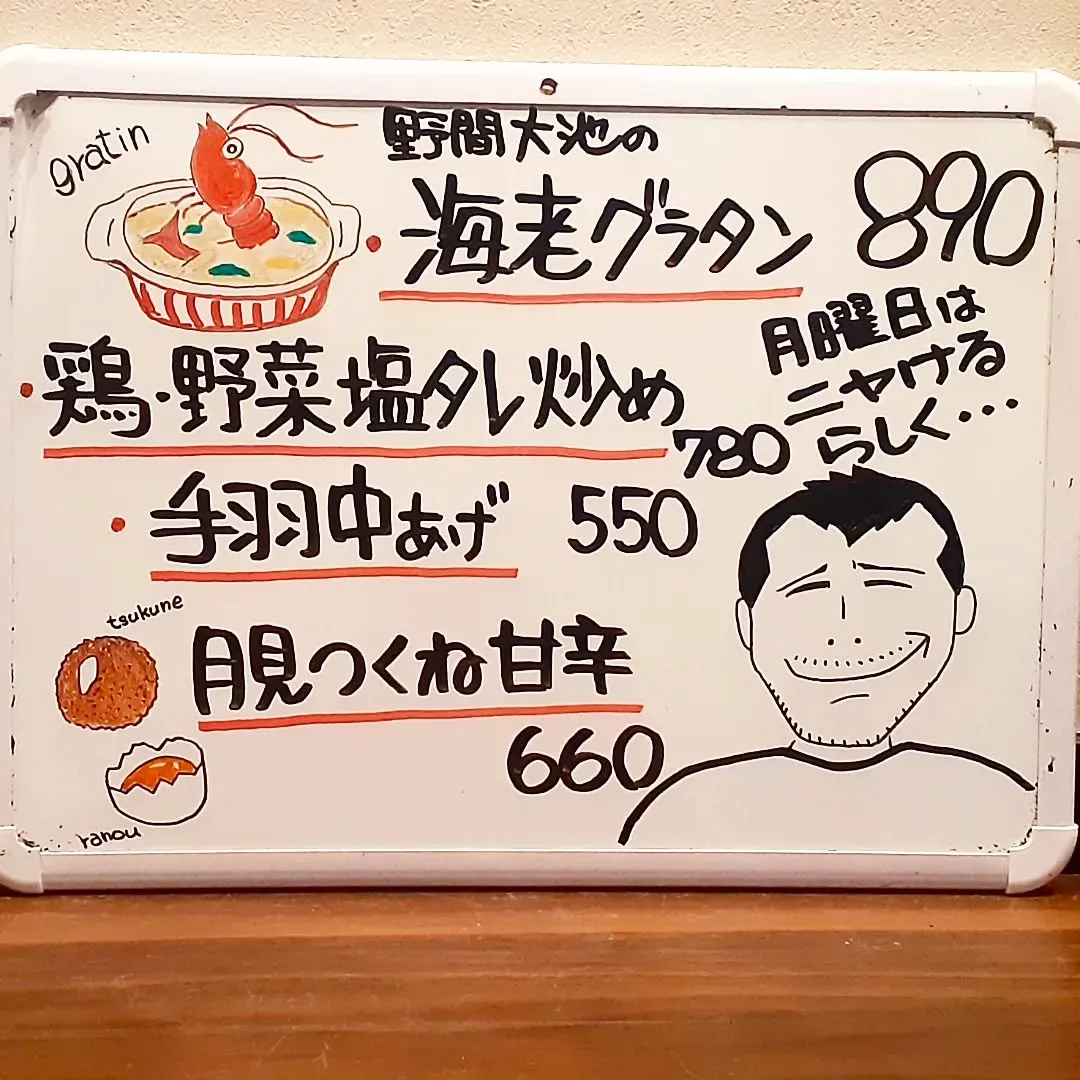 gratin
野間大池の
・海老グラタン 890
・鶏・野菜塩タレ炒め
780
月曜日は
ニヤける
らしく…
・手羽中あげ 550
tsukune
月見つくね甘辛
660
ranou